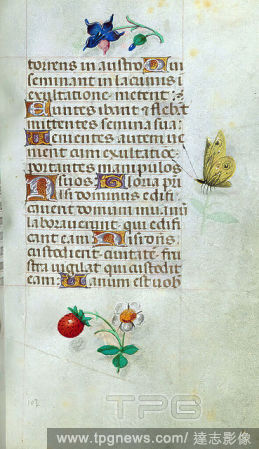 torrens in austro Qui
seminant in lacrimis i
exultatione metent
Euntes ibant & flebāt
mittentes semina sua:
Venientes autem ue
nient cum exultatiōe
portantes manipulos
suos Gloria pri
Nisi dominus edifi
cauerit domum in
laborauerunt qui edifi
cant eam Nisi
custodierit ciuitatē fru
stra uigilat qui custodit
eam Vanum est uob
102
TPG
www.tpgnews.com/ 達志影像